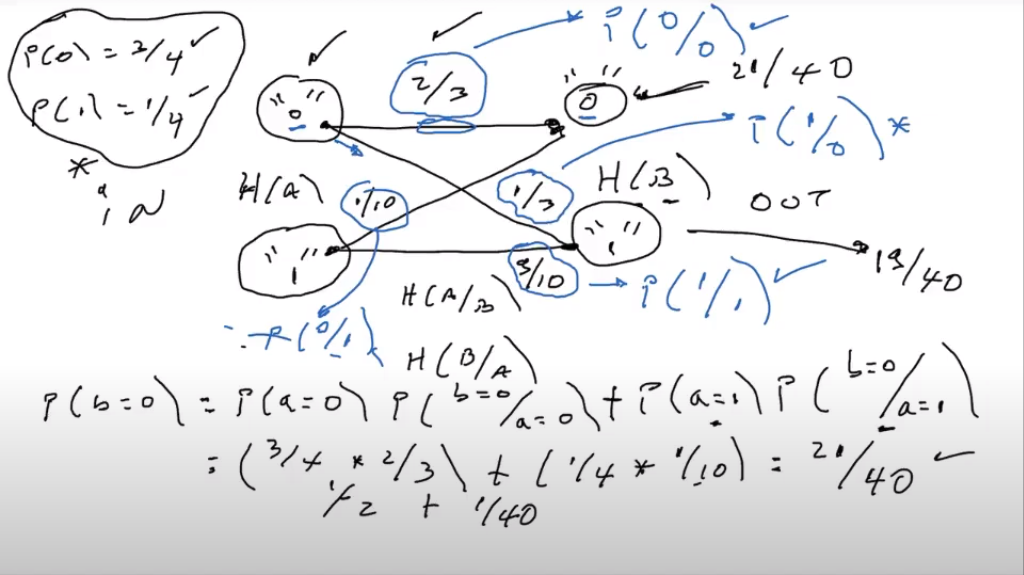 P(0) = 3/4 ✓
P(1) = 1/4 ✓
*
in
2/3
P(0/0) ✓
"0"
"0"
21/40
P(1/0)*
H(A)
1/10
1/3
H(B)
OUT
"1"
"1"
9/10
P(1/1) ✓
19/40
H(A/B)
P(0/1)
H(B/A)
P(b=0) = P(a=0) P(b=0/a=0) + P(a=1) P(b=0/a=1)
= (3/4 * 2/3) + (1/4 * 1/10) = 21/40 ✓
1/2 + 1/40